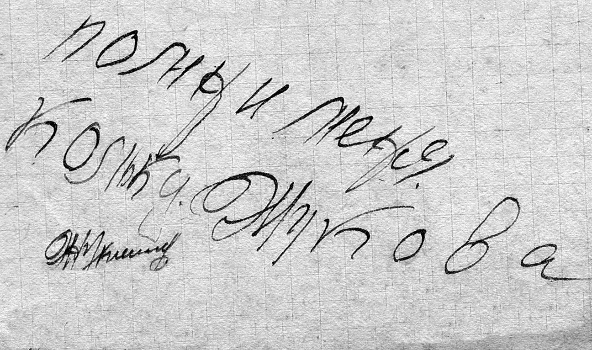 помни меня.
Колька. Жукова